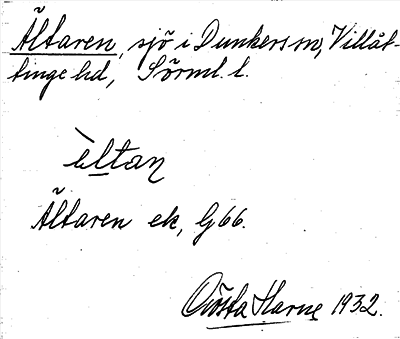 Ältaren, sjö i Dunkers sn, Villåt-
tinge hd, Sörml. l.
èltan
Ältaren ek, G66.
Gösta Harne 1932.